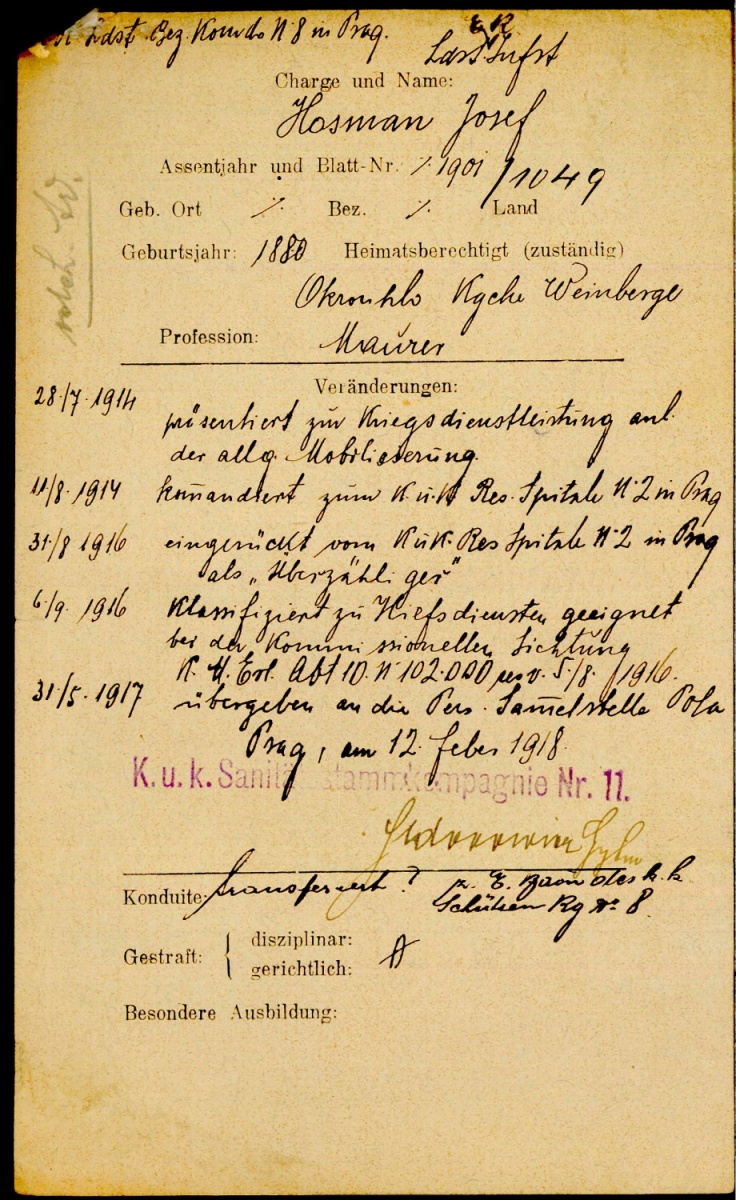 Ldst. Bez. Komdo N:8 in Prag.
ER
LdstInfst
Charge und Name:
Hosman Josef
Assentjahr und Blatt-Nr. ·/. 1901/1049
Geb. Ort ·/. Bez. ·/. Land
Geburtsjahr: 1880 Heimatsberechtigt (zuständig)
Okrouhlo Kgche Weinberge
Profession: Maurer
Veränderungen:
28./7. 1914 präsentiert zur Kriegsdienstleistung anl.
der allg. Mobilisierung.
11/8. 1914 komandiert zum K.u.K Res. Spitale N:2 in Prag
31./8 1916 eingerückt vom K.u.K. Res Spitale N:2 in Prag
als „Überzähliger"
6/9. 1916 Klassifiziert zu Hilfsdiensten geeignet
bei der Kommissionellen Sichtung
K. M. Erl. Abt 10. N 102.000 res v. 5./8. 1916.
31./5. 1917 übergeben an die Pers. Sam̅elstelle Pola
Prag, am 12. feber 1918.
K. u. k. Sanitätsstammkompagnie Nr. 11.
Konduite: transferiert? z. E. Baon des k. k.
Schützen Rg No 8.
Gestraft: { disziplinar:
gerichtlich:
Besondere Ausbildung: